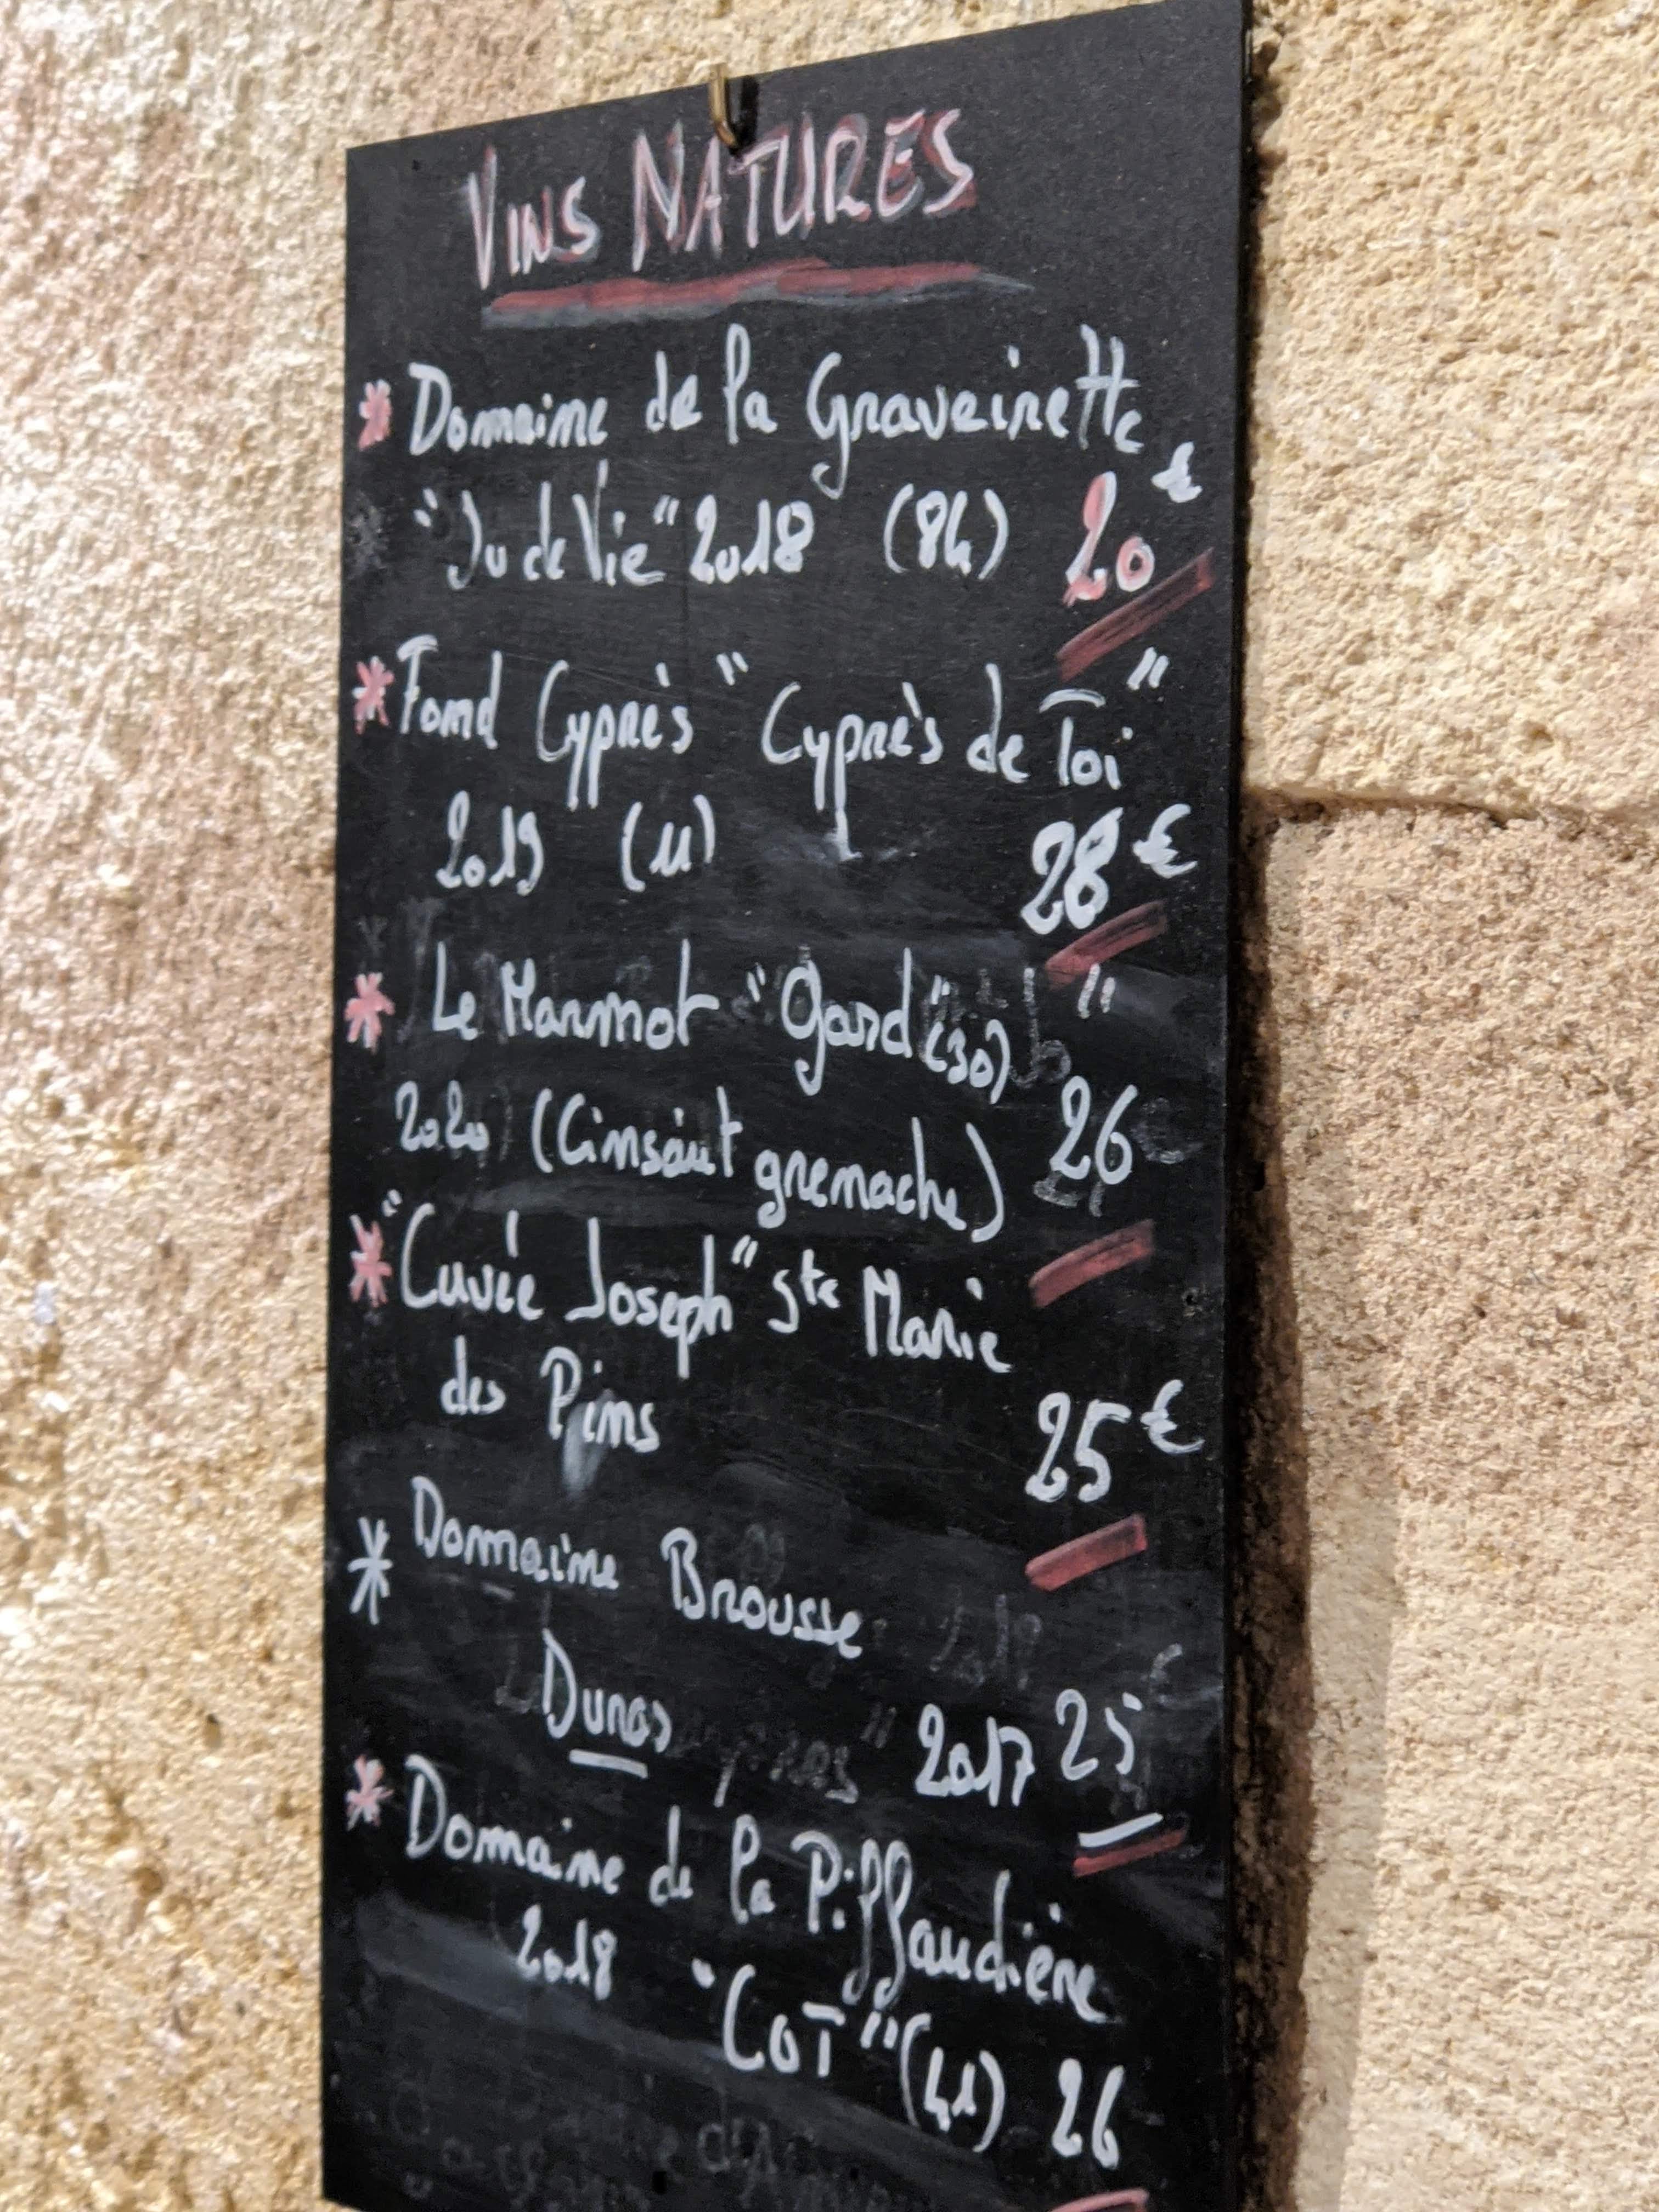 VINS NATURES
* Domaine de la Graveirette
"Ju de Vie" 2018 (84) 20 €
* Fond Cyprès "Cyprès de Toi"
2019 (11) 28 €
* Le Marmot "Gard" (30) "
2020 (Cinsaut grenache) 26
* "Cuvée Joseph" Ste Marie
des Pins 25 €
* Domaine Brousse
Duras " 2017 25
* Domaine de la Piffaudière
2018 "COT" (41) 26